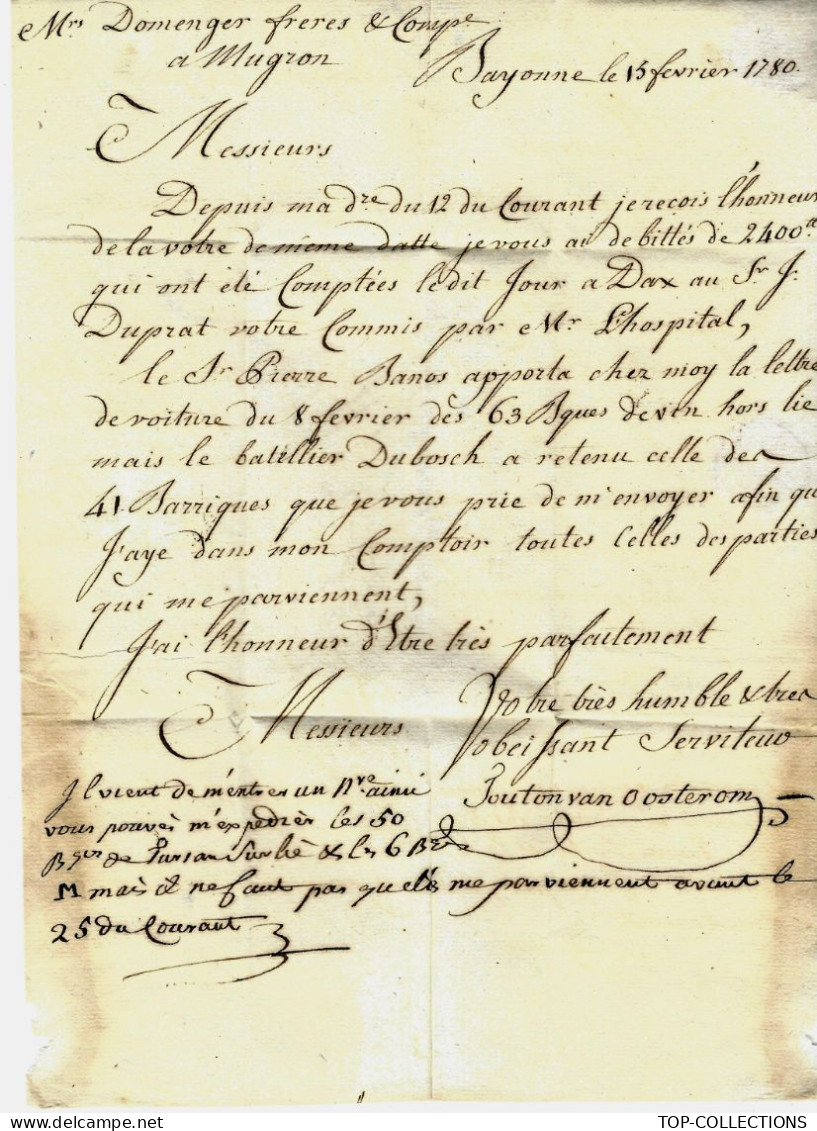 Mrs Domenger freres & Compe
a Mugron
Bayonne le 15 fevrier 1780.
Messieurs
Depuis ma dre du 12 du Courant je reçois l'honneur
de la votre de meme datte je vous ai debittés de 2400tt
qui ont été Comptées le dit Jour a Dax au Sr J.
Duprat votre Commis par Mr Lhospital,
le Sr Pierre Banos apporta chez moy la lettre
de voiture du 8 fevrier des 63 Bques de vin hors lie
mais le batellier Dubosch a retenu celle des
41 Barriques que je vous prie de m'envoyer afin que
J'aye dans mon Comptoir toutes Celles des parties
qui me parviennent,
J'ai l'honneur d'Etre très parfaitement
Messieurs
Votre très humble & tres
obeissant Serviteur
Il vient de m'entrer un Nre ainsi
vous pouvés m'expedier les 50
Bques de Tursan Sur lie & les 6 Bques
M mais il ne faut pas qu'elles me parviennent avant le
25 du Courant
Poutonvan Oosterom
TOP-COLLECTIONS